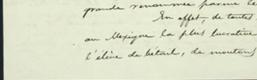 grande renommée parmi le
En effet, de toutes
au Mexique la plus lucrative
l'élève de bétail, de moutons